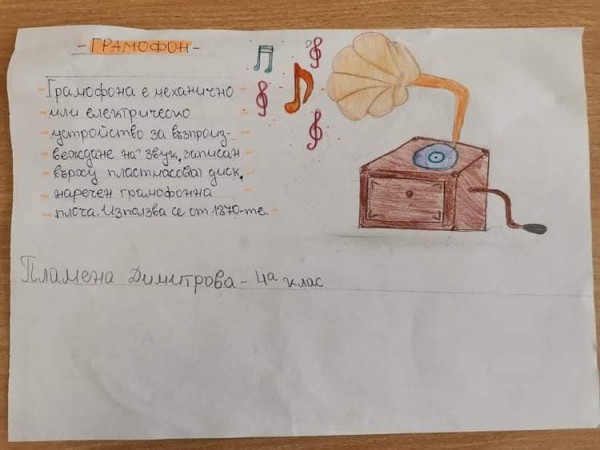 - ГРАМОФОН -
- Грамофона е механично
- или електрическо
- устройство за възпроиз-
- веждане на звук, записан
- върху пластмасова диск,
- наречен грамофонна
- плоча. Използва се от 1870-те.
Пламена Димитрова - 4а клас